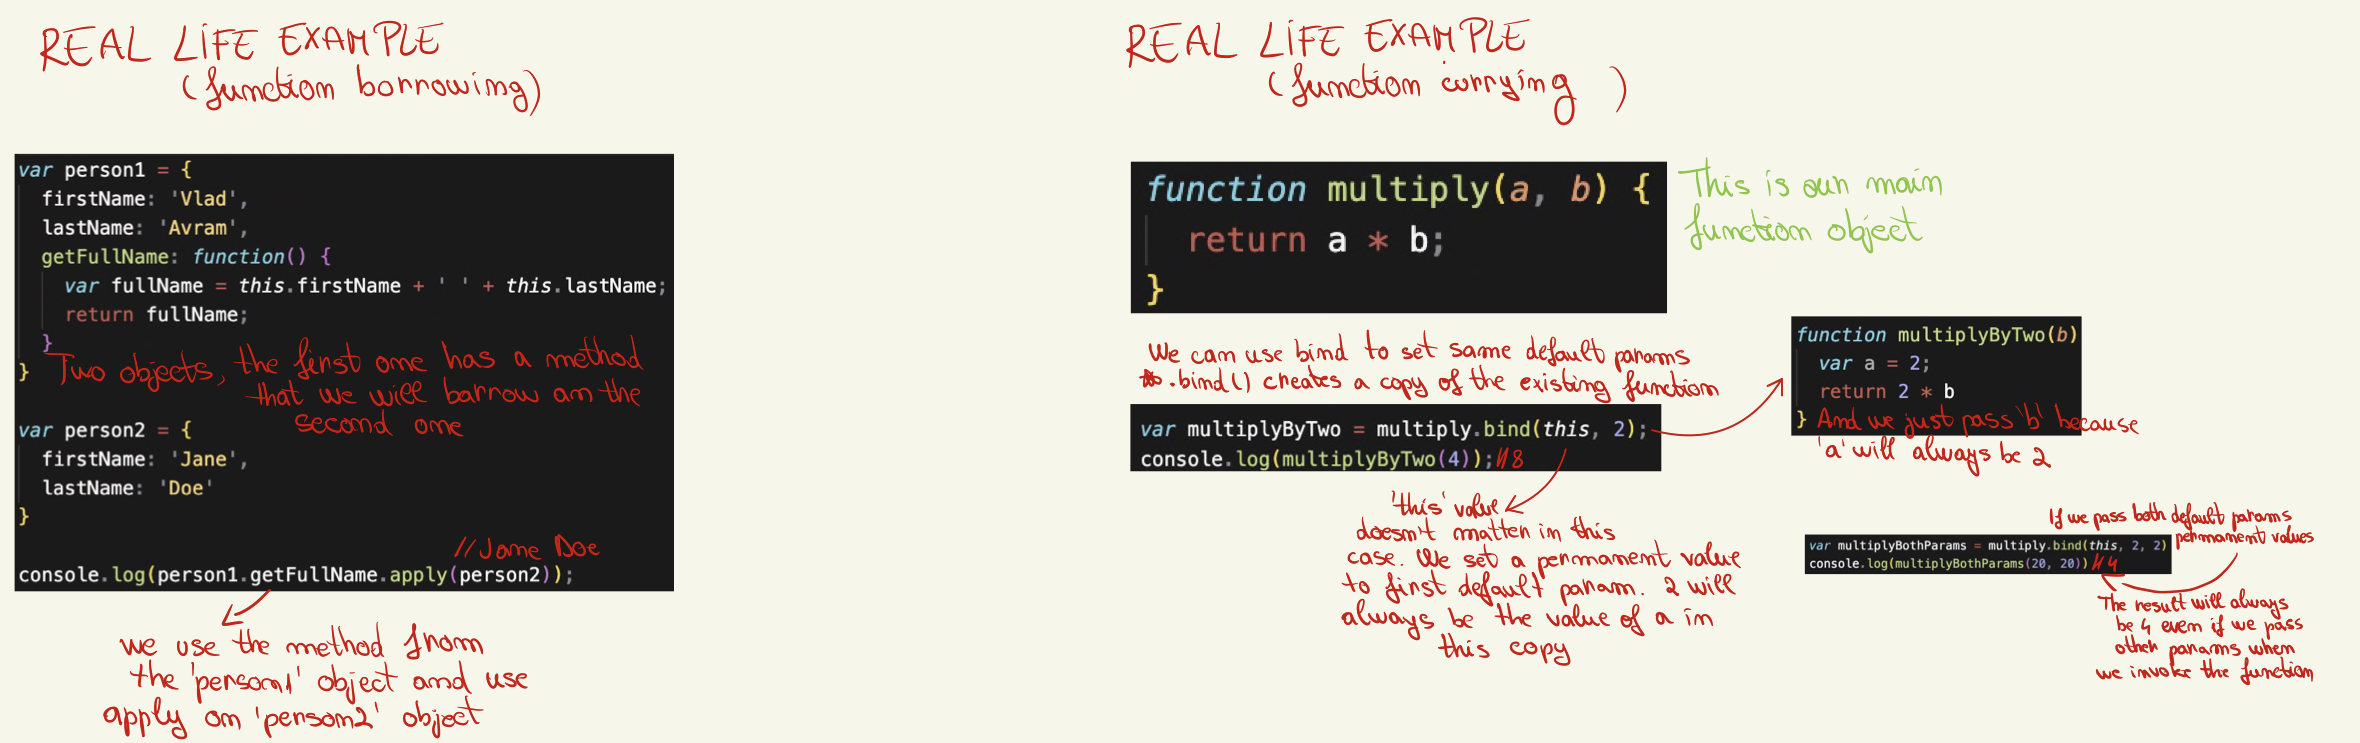 REAL LIFE EXAMPLE
(function borrowing)
var person1 = {
firstName: 'Vlad',
lastName: 'Avram',
getFullName: function() {
var fullName = this.firstName + ' ' + this.lastName;
return fullName;
}
}
Two objects, the first one has a method
that we will barrow on the
second one
var person2 = {
firstName: 'Jane',
lastName: 'Doe'
}
//Jane Doe
console.log(person1.getFullName.apply(person2));
we use the method from
the 'person1' object and use
apply on 'person2' object
REAL LIFE EXAMPLE
(function currying )
function multiply(a, b) {
return a * b;
}
This is our main
function object
We can use bind to set some default params
.bind() creates a copy of the existing function
var multiplyByTwo = multiply.bind(this, 2);
console.log(multiplyByTwo(4)); //8
function multiplyByTwo(b)
var a = 2;
return 2 * b
}
And we just pass 'b' because
'a' will always be 2
'this' value
doesn't matter in this
case. We set a permanent value
to first default param. 2 will
always be the value of a in
this copy
If we pass both default params
permanent values
var multiplyBothParams = multiply.bind(this, 2, 2)
console.log(multiplyBothParams(20, 20)) //4
The result will always
be 4 even if we pass
other params when
we invoke the function